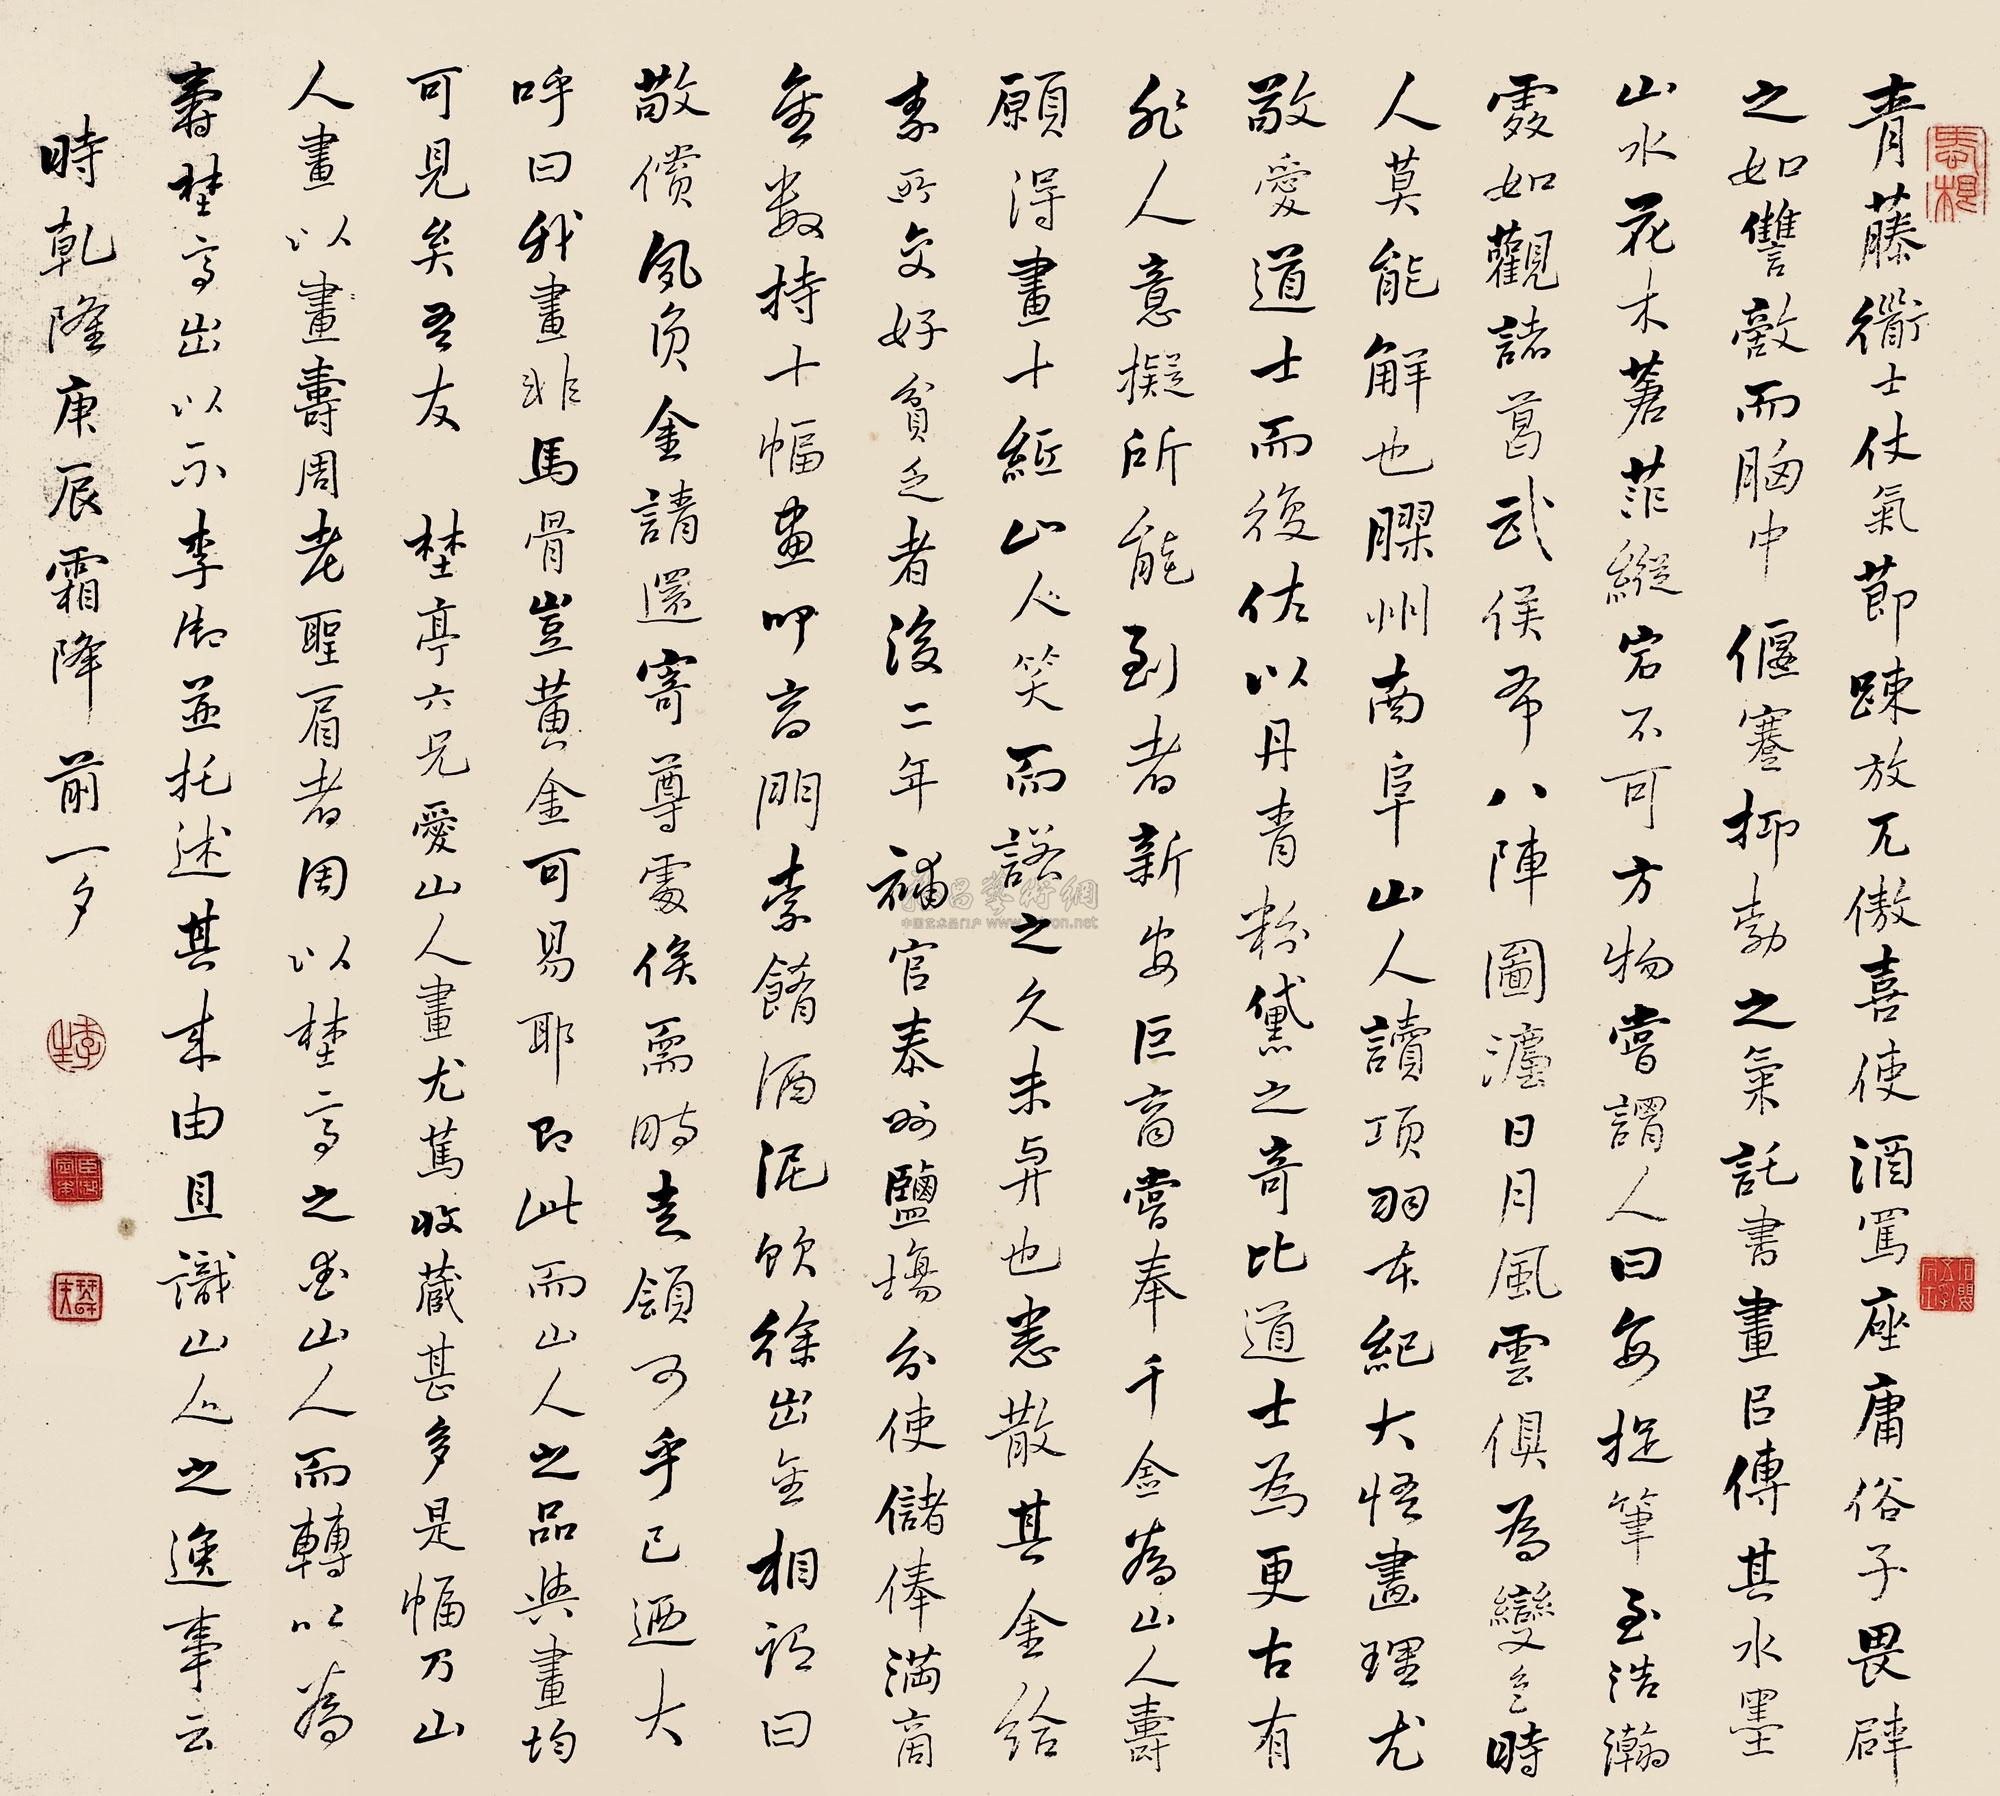 青藤衟士仗氣節踈放兀傲喜使酒罵座庸俗子畏辟
之如讐敵而胸中偃蹇抑勃之氣託書畫㠯傳其水墨
山水花木菩蕜縱宕不可方物嘗謂人曰每捉筆至浩瀚
處如觀諸葛武侯布八陣圖瀍日月風雲俱為變色時
人莫能解也膠州南阜山人讀項羽本紀大悟畫理尤
敬愛道士而復佐以丹青粉黛之奇比道士為更古有
非人意擬所能到者新安巨商嘗奉千金為山人壽
願得畫十紙山人笑而諾之久未與也悉散其金給
素所交好貧乏者後二年補官泰州鹽場分使儲俸滿商
金數持十幅畫叩商門索餚酒泥飲徐出金相謂曰
敬償夙負金請還寄尊處俟需時走領可乎已迺大
呼曰我畫非馬骨豈黃金可易耶即此而山人之品與畫均
可見矣吾友 埜亭六兄愛山人畫尤篤收藏甚多是幅乃山
人畫以畫壽周老聖眉者周以埜亭之愛山人而轉以為
壽埜亭出以示李御並托述其來由且識山人之逸事云
時乾隆庚辰霜降前一夕
李